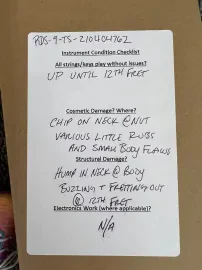 RDS-9-TS-210404762
Instrument Condition Checklist
All strings/keys play without issues?
UP UNTIL 12TH FRET
Cosmetic Damage? Where?
CHIP ON NECK @ NUT
VARIOUS LITTLE RUBS
AND SMALL BODY FLAWS
Structural Damage?
HUMP IN NECK @ BODY
BUZZING + FRETTING OUT
@ 12TH FRET
Electronics Work (where applicable)?
N/A